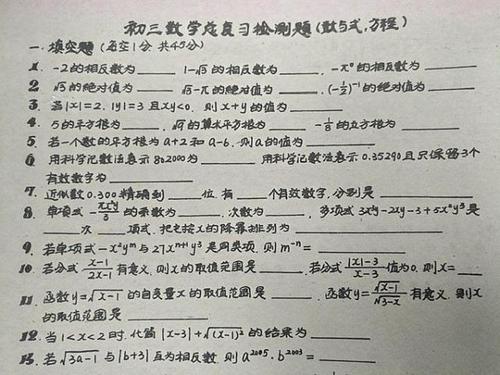 初三数学总复习检测题(数与式,方程)
一.填空题(每空1分 共45分)
1. -2的相反数为____ 1-√5的相反数为____, -π°的相反数为____
2. √5的绝对值为____ √5-π的绝对值为____, (-1/2)⁻¹的绝对值为____
3. 若|x|=2, |y|=3且xy<0, 则x+y的值为____
4. 5的平方根为____, √9的算术平方根为____ -1/8的立方根为____
5. 若一个数的平方根为a+2和a-6, 则a的值为____
6 用科学记数法表示802000为____ 用科学记数法表示0.35290且只保留3个
有效数字为____
7. 近似数0.300精确到____位, 有____个有效数字, 分别是____
8. 单项式-πx²y/3的系数为____, 次数为____, 多项式3x²y-2xy-3+5x²y³是
____次____项式, 把它按x的降幂排列为____
9. 若单项式-x²yᵐ与27xⁿ⁺¹y³是同类项, 则m⁻ⁿ=____
10 若分式x-1/2x-1有意义, 则x的取值范围是____. 若分式|x|-3/x-3值为0, 则x=____
11. 函数y=√x-1的自变量x的取值范围是____. 函数y=√x-1/√3-x有意义, 则x
的取值范围是____
12. 当1<x<2时, 化简|x-3|+√(x-1)²的结果为____
13. 若√3a-1与|b+3|互为相反数, 则a²⁰⁰⁵·b²⁰⁰³=____